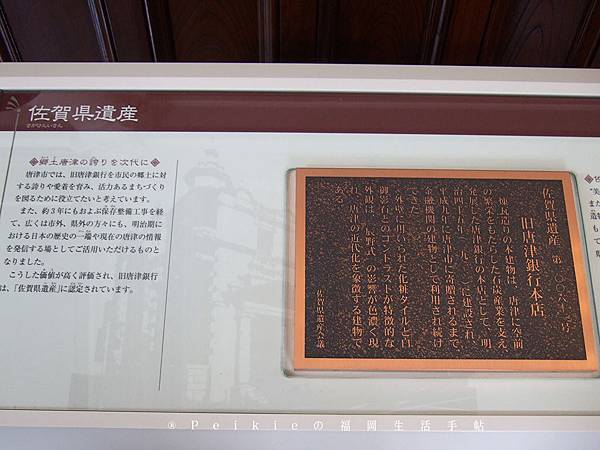 佐賀県遺産
さがけんいさん
◆郷土唐津の誇りを次代に◆
唐津市では、旧唐津銀行を市民の郷土に対
する誇りや愛着を育み、活力あるまちづくり
を図るために役立てたいと考えています。
また、約3年にもおよぶ保存整備工事を経
て、広くは市外、県外の方々にも、明治期に
おける日本の歴史の一端や現在の唐津の情報
を発信する場としてご活用いただけるものと
なりました。
こうした価値が高く評価され、旧唐津銀行
は、「佐賀県遺産」に認定されています。
佐賀県遺産
旧唐津銀行本店
煉瓦造りの本建物は、唐津に空前
の繁栄をもたらした石炭産業を支え、
発展した唐津銀行の本店として、明
治四十五年(一九一二)に建設され、
平成九年に唐津市に寄贈されるまで、
金融機関の建物として利用され続け
てきた。
外壁に用いられた化粧タイルと白
御影石とのコントラストが特徴的な
外観は、「辰野式」の影響が色濃く現
れ、唐津の近代化を象徴する建物で
ある。
佐賀県遺産会議
®Peikieの福岡生活手帖